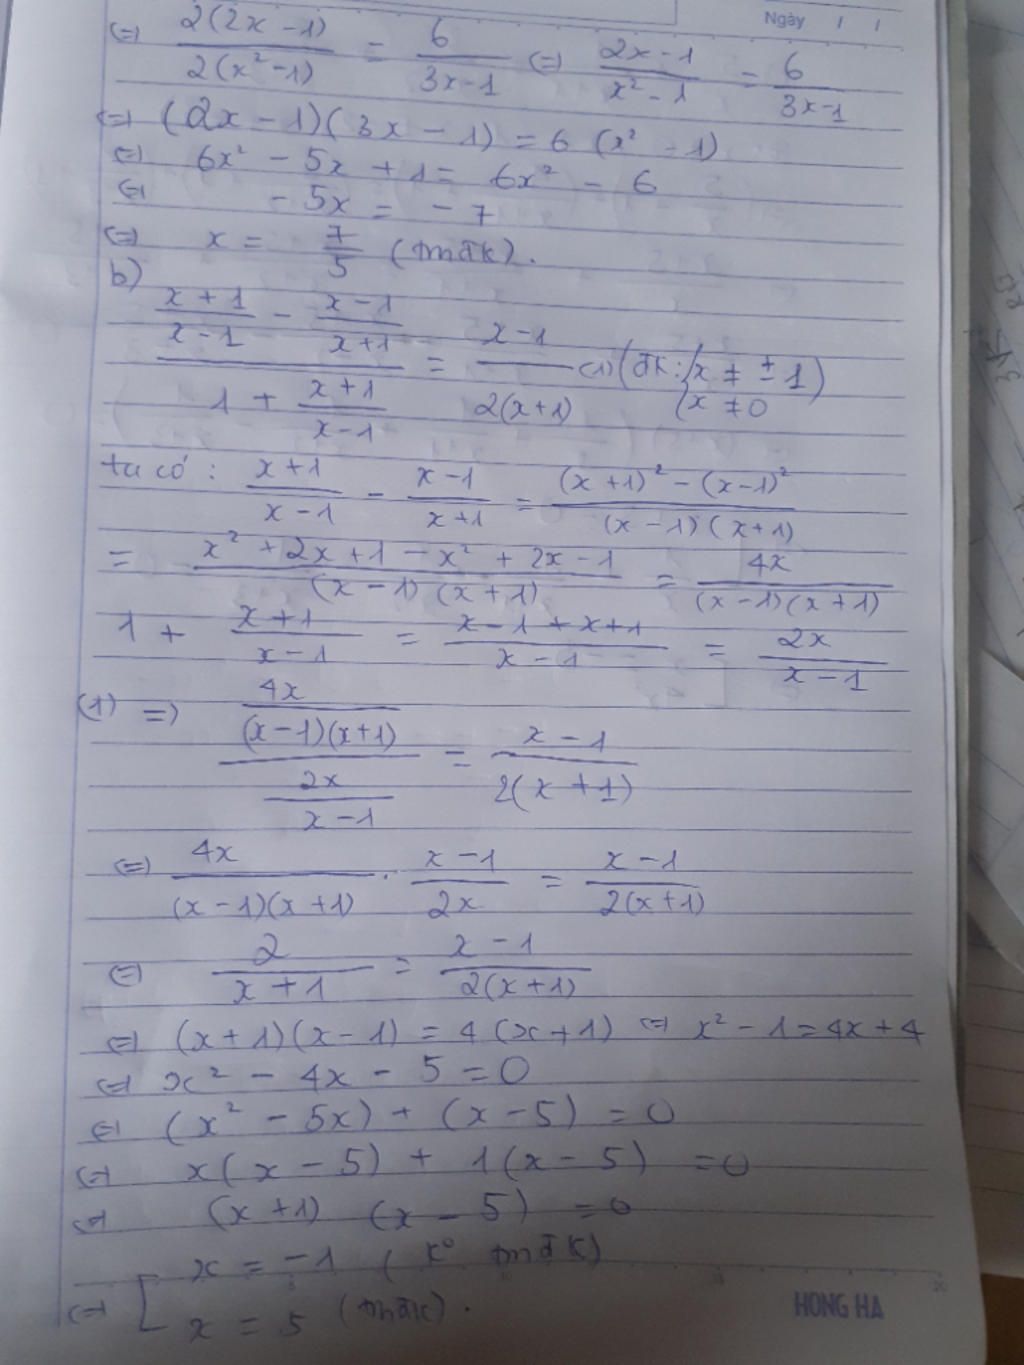 Ngày / /
⇔ 2(2x - 1)/2(x² - 1) = 6/3x - 1 ⇔ 2x - 1/x² - 1 = 6/3x - 1
⇔ (2x - 1)(3x - 1) = 6 (x² - 1)
⇔ 6x² - 5x + 1 = 6x² - 6
⇔ - 5x = - 7
⇔ x = 7/5 (tmđk).
b)
(x + 1/x - 1 - x - 1/x + 1)/(1 + x + 1/x - 1) = x - 1/2(x + 1) (1) (đk: {x ≠ ± 1; x ≠ 0)
ta có : x + 1/x - 1 - x - 1/x + 1 = (x + 1)² - (x - 1)²/(x - 1)(x + 1)
= x² + 2x + 1 - x² + 2x - 1/(x - 1)(x + 1) = 4x/(x - 1)(x + 1)
1 + x + 1/x - 1 = x - 1 + x + 1/x - 1 = 2x/x - 1
(1) ⇒ (4x/(x - 1)(x + 1))/(2x/x - 1) = x - 1/2(x + 1)
⇔ 4x/(x - 1)(x + 1) . x - 1/2x = x - 1/2(x + 1)
⇔ 2/x + 1 = x - 1/2(x + 1)
⇔ (x + 1)(x - 1) = 4 (x + 1) ⇔ x² - 1 = 4x + 4
⇔ x² - 4x - 5 = 0
⇔ (x² - 5x) + (x - 5) = 0
⇔ x(x - 5) + 1(x - 5) = 0
⇔ (x + 1) (x - 5) = 0
⇔ [ x = -1 (k° tmđk)
x = 5 (tmđk).
HONG HA